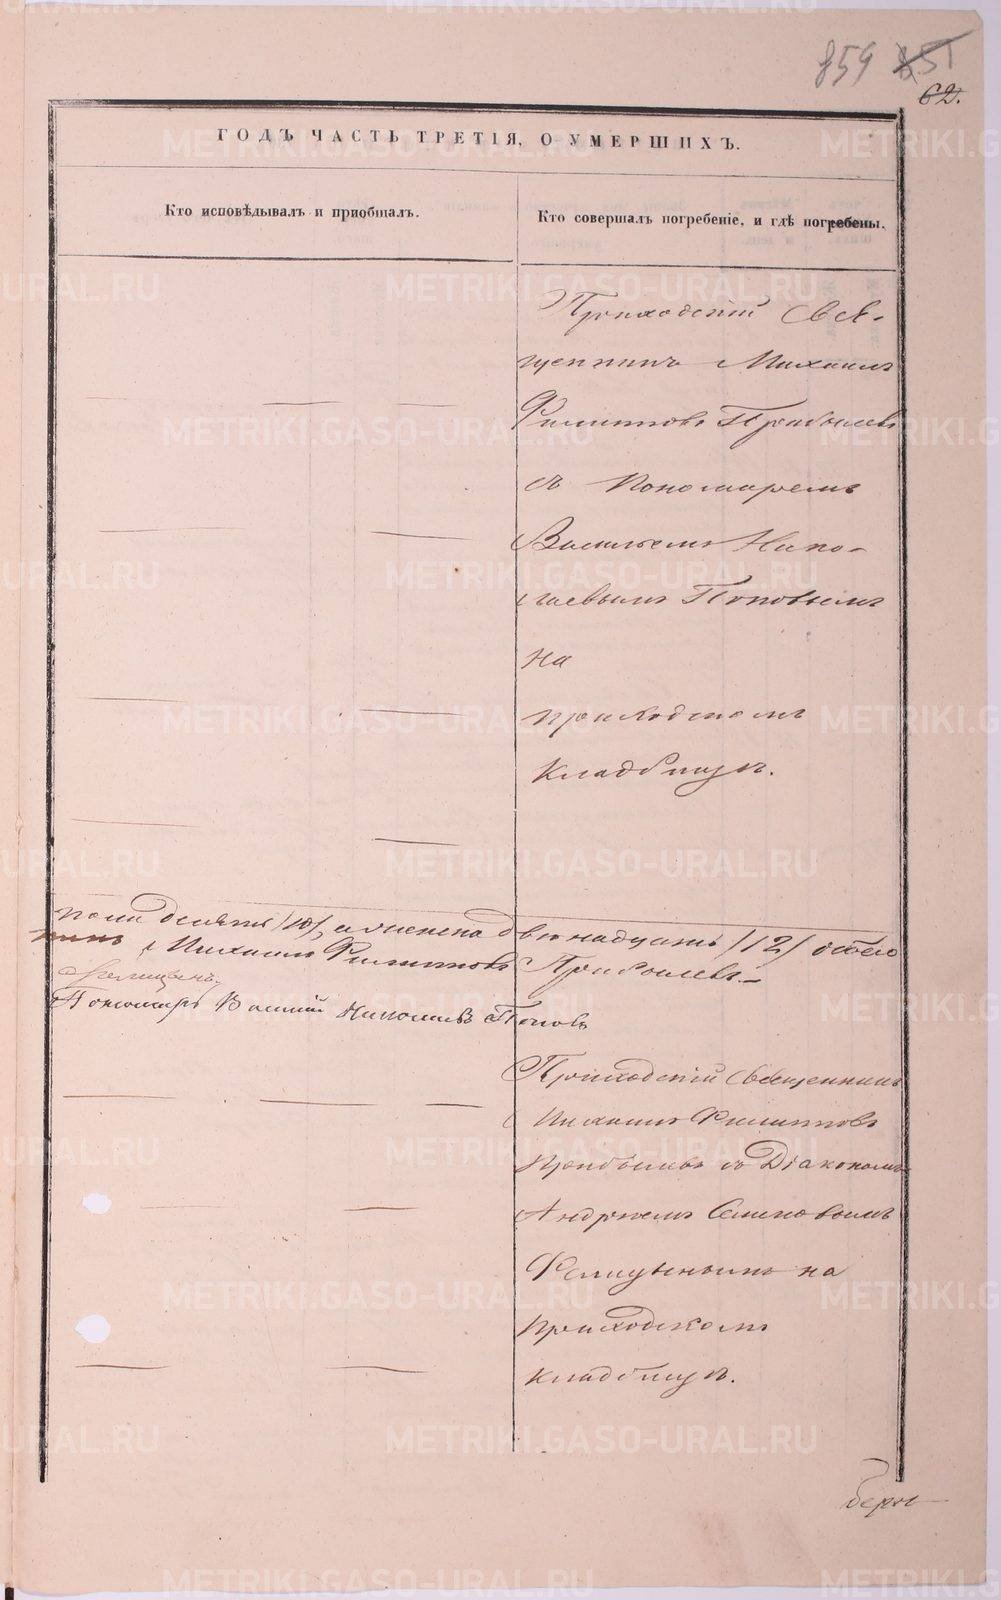 859 851
62.
ГОДЪ ЧАСТЬ ТРЕТІЯ, О УМЕРШИХЪ.
Кто исповѣдывалъ и пріобщалъ.
Кто совершалъ погребеніе, и гдѣ погребены.
Приходскій Свя-
щенникъ Михаилъ
Филиповъ Прибылевъ
съ Пономаремъ
Васильемъ Нико-
лаевымъ Поповымъ
на
приходскомъ
кладбищѣ.
пола десять /10/, а женска двенадцать /12/ обоего
никъ Михаилъ Филиповъ Прибылевъ
Пономарь Василій Николаевъ Поповъ
Приходскій Священникъ
Михаилъ Филиповъ
Прибылевъ съ Діакономъ
Андреемъ Семеновымъ
на
приходскомъ
кладбищѣ.
METRIKI.GASO-URAL.RU